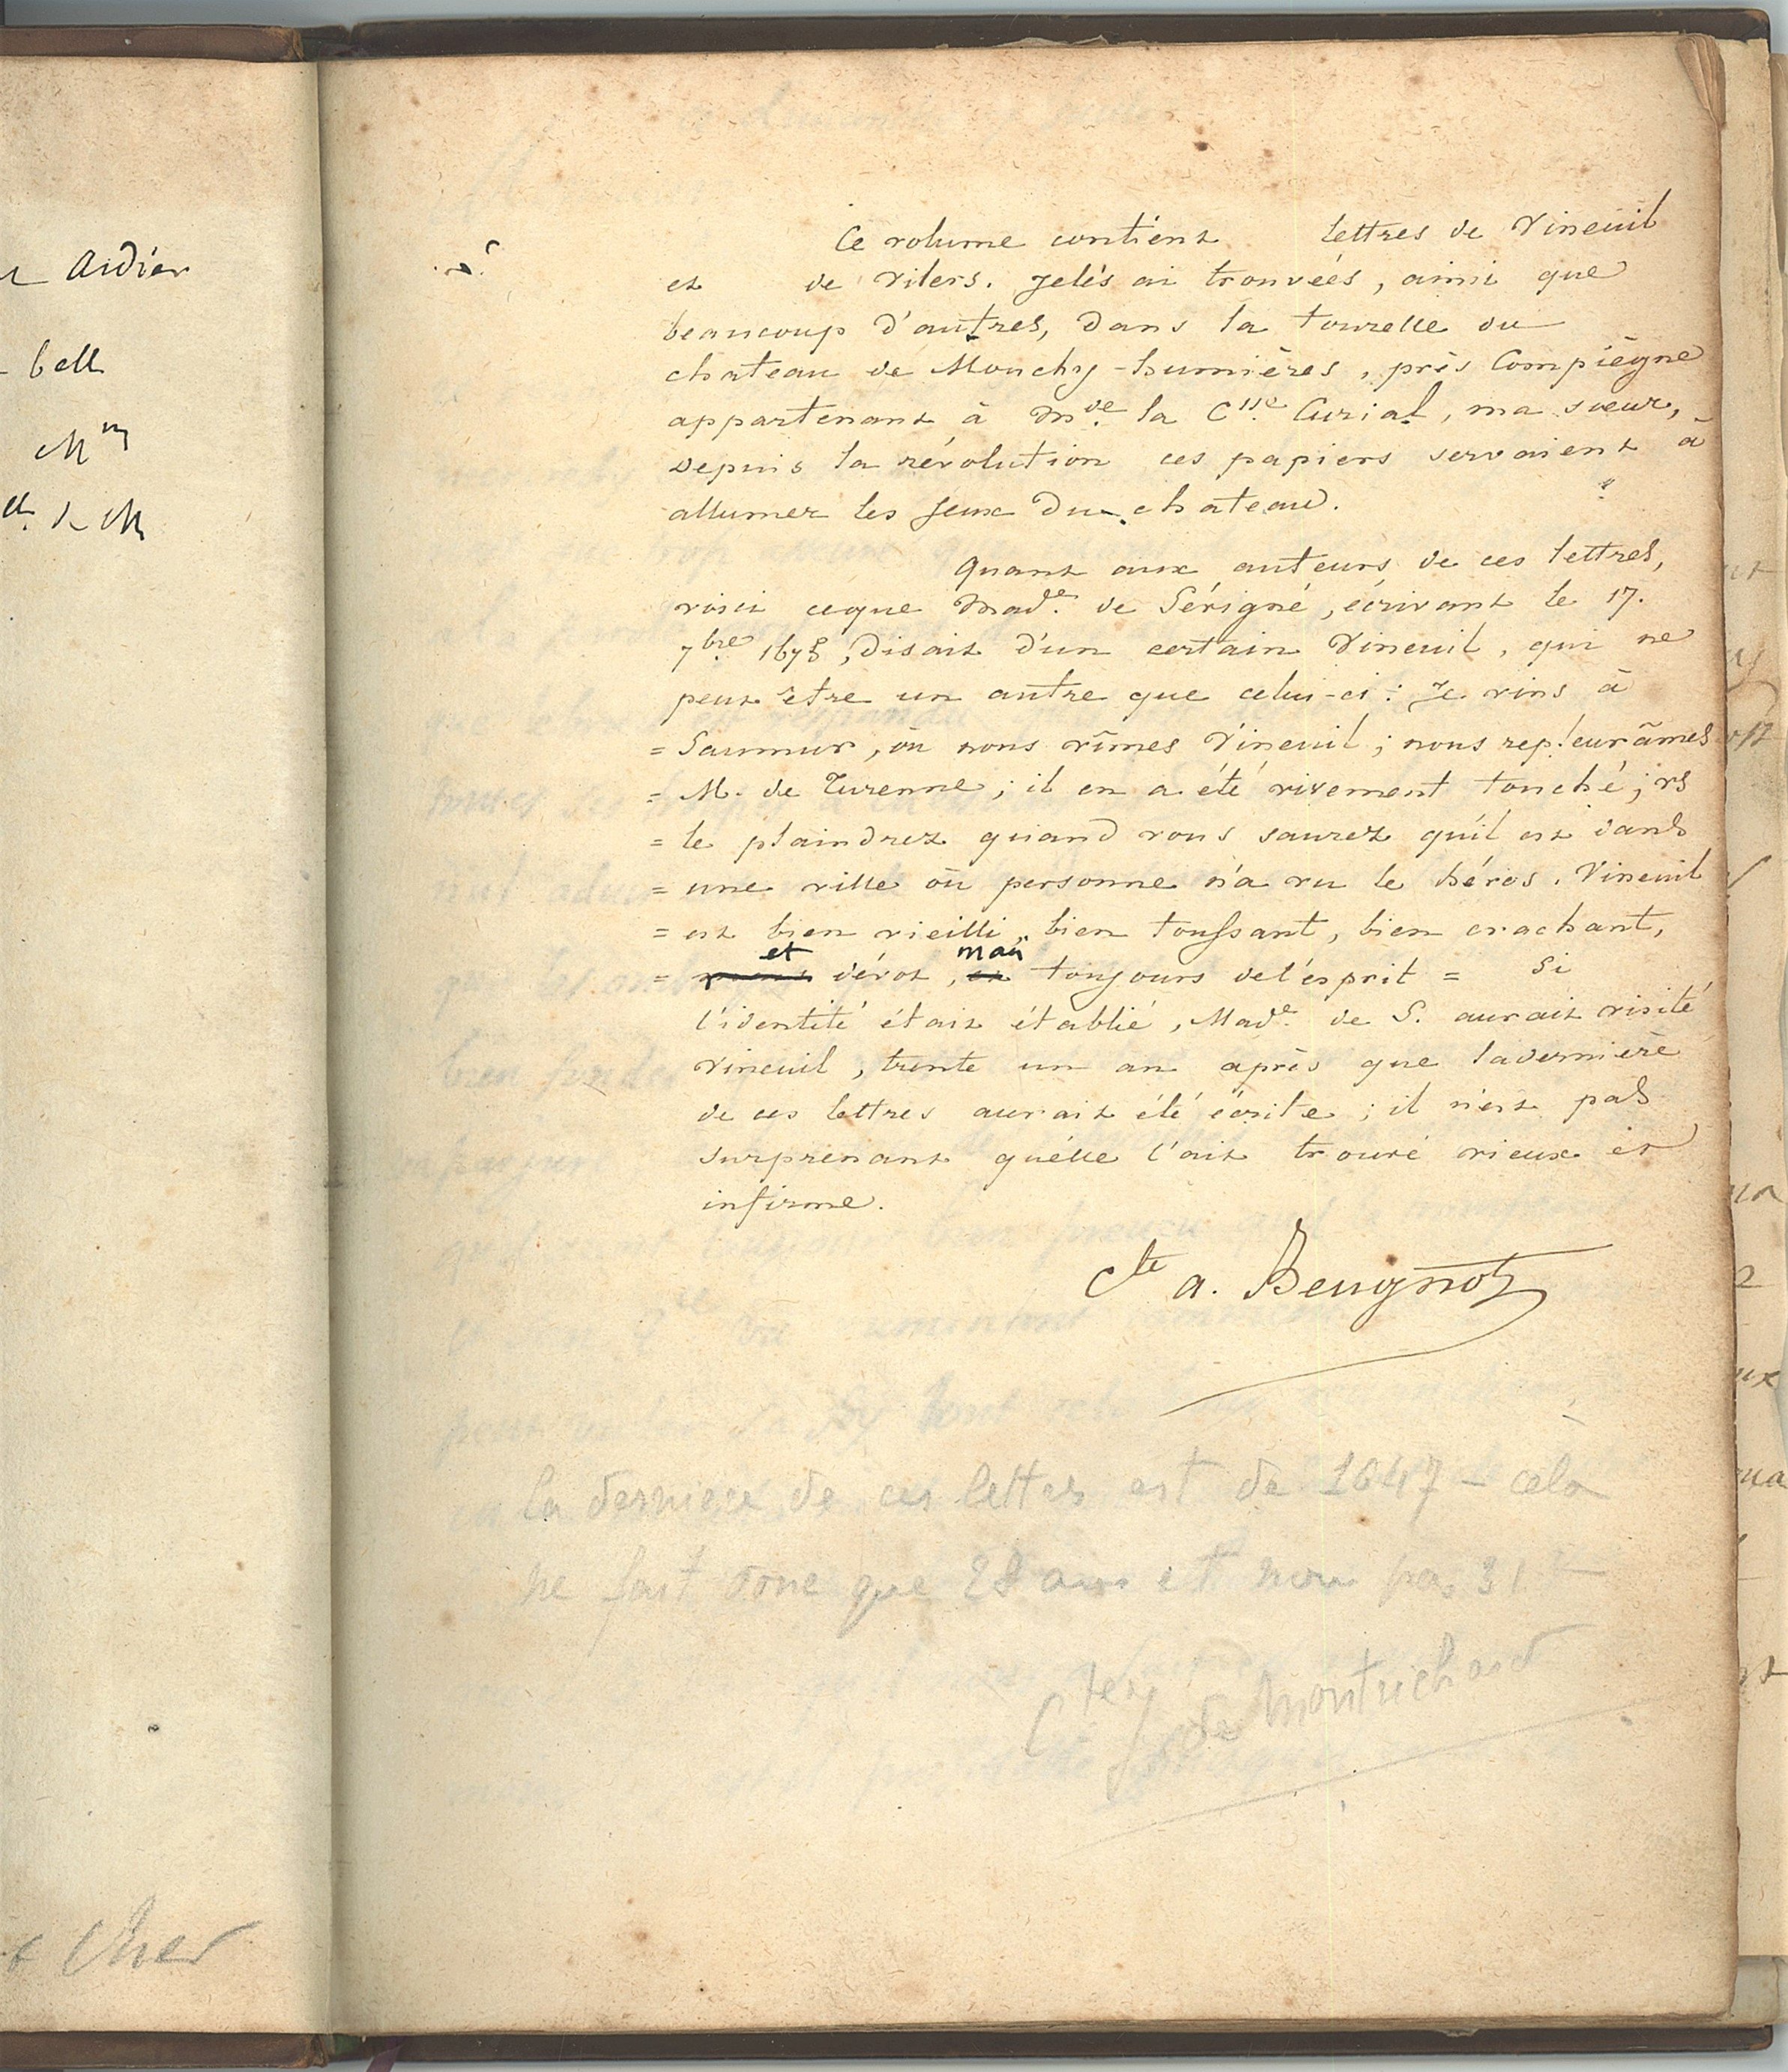 Ardier
bell
M
M
Cher
Ce volume contient lettres de Vineuil
et de Vilers. Je les ai trouvées, ainsi que
beaucoup d'autres, dans la tourelle du
chateau de Mouchy-humières, près Compiègne
appartenant à Mde. la Csse. Curial, ma sœur,
depuis la révolution ces papiers servaient à
allumer les feux du chateau.
Quant aux auteurs de ces lettres,
voici ce que Made. de Sévigné, écrivant le 17.
7bre. 1675, disait d'un certain Vineuil, qui ne
peut être un autre que celui-ci : Je vins à
= Saumur, où nous vîmes Vineuil ; nous repleurâmes
= M. de Turenne ; il en a été vivement touché ; vs
= le plaindrez quand vous saurez qu'il est dans
= une ville où personne n'a vu le héros. Vineuil
= est bien vieilli, bien toussant, bien crachant,
= et dévot, mais toujours de l'esprit = Si
l'identité était établie, Made. de S. aurait visité
Vineuil, trente un an après que la dernière
de ces lettres aurait été écrite ; il n'est pas
surprenant qu'elle l'ait trouvé vieux et
infirme.
Cte A. Beugnot
La derniere de ces lettres est de 1647 - cela
ne fait donc que 28 ans et non pas 31 -
de Montrichard